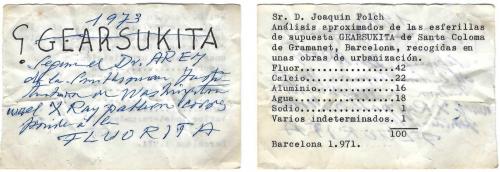 1973
GEARSUKITA
Segun el Dr. AREM
de la Smithsonian
de Washington
el X Ray pattern corres
ponde a la
FLUORITA
Sr. D. Joaquín Folch
Análisis aproximados de las esferillas
de aupuesta GEARSUKITA de Santa Coloma
de Gramanet, Barcelona, recogidas en
unas obras de urbanización.
Fluor...............42
Calcio..............22
Aluminio............16
Agua................18
Sodio............... 1
Varios indeterminados. 1
100
Barcelona 1.971.